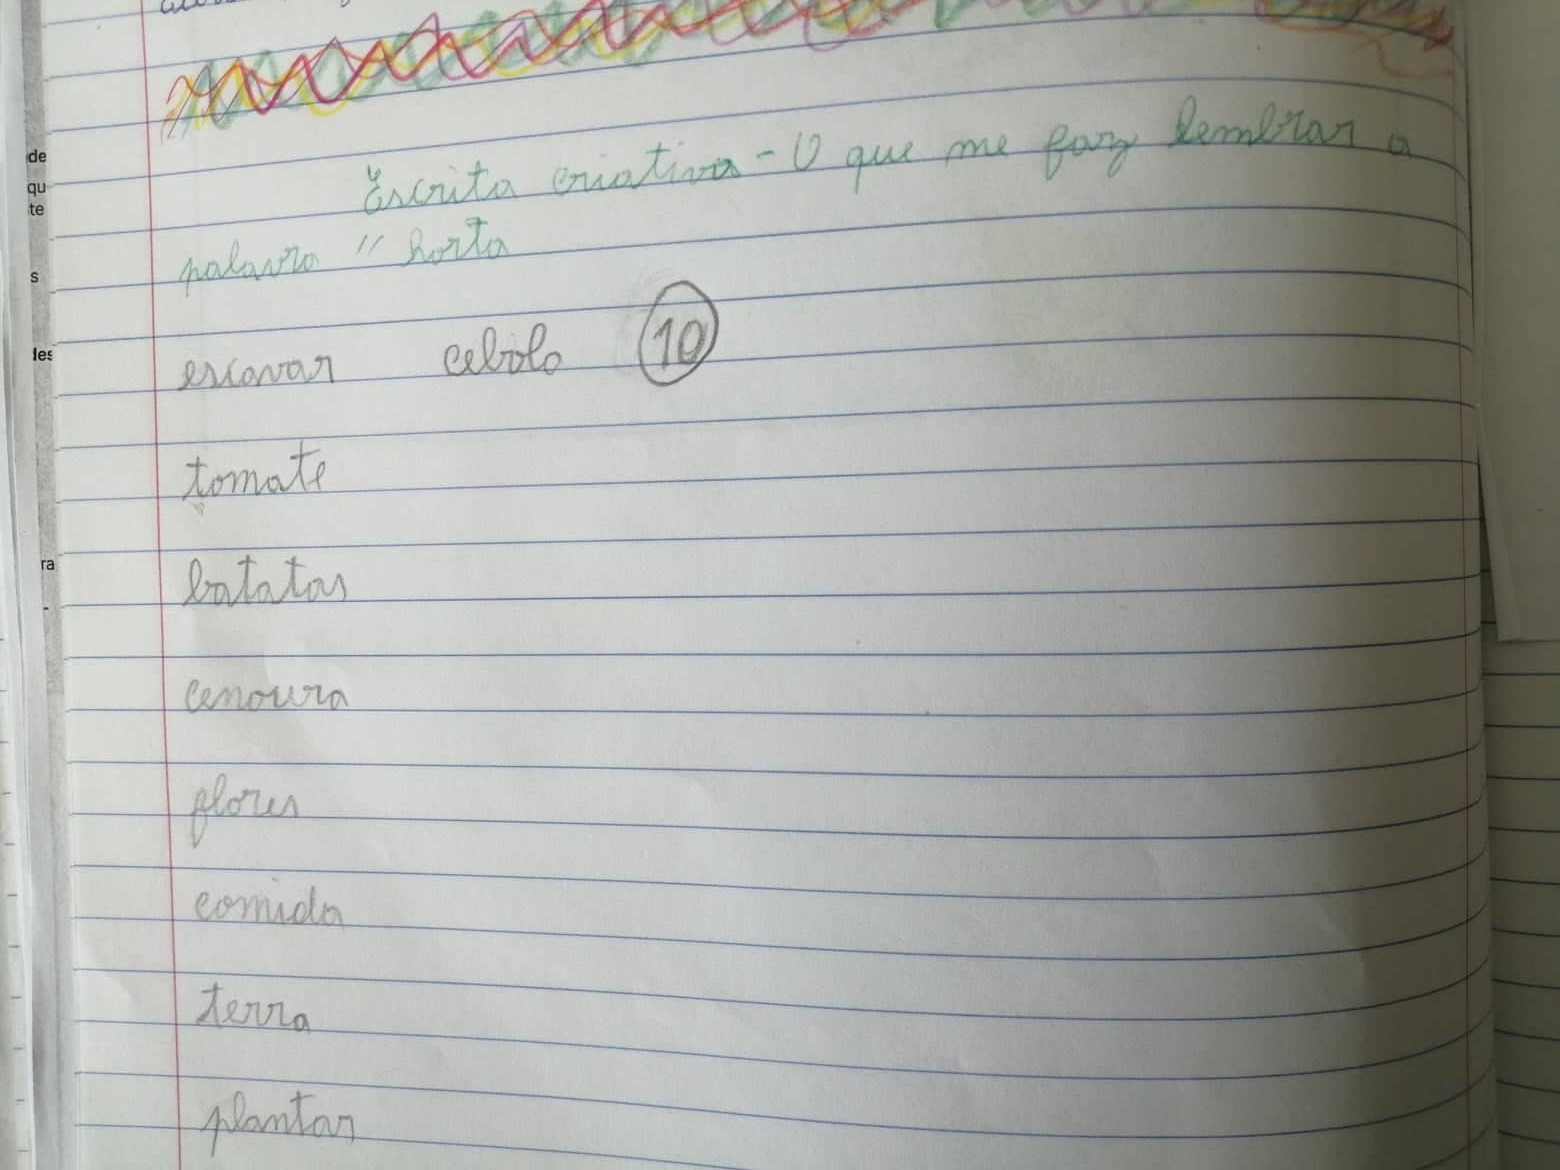 Escrita criativa - O que me faz lembrar a
palavra " horta
escavar cebola 10
tomate
batatas
cenoura
flores
comida
terra
plantar
de
qu
te
s
des
ra
-